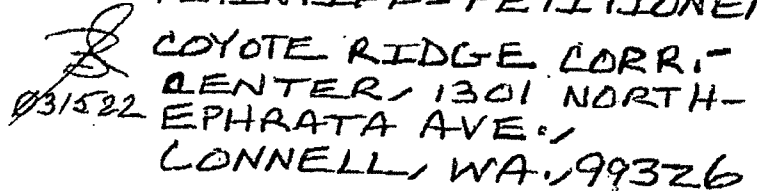 COYOTE RIDGE CORR.-
CENTER, 1301 NORTH-
031522
EPHRATA AVE.,
CONNELL, WA., 99326